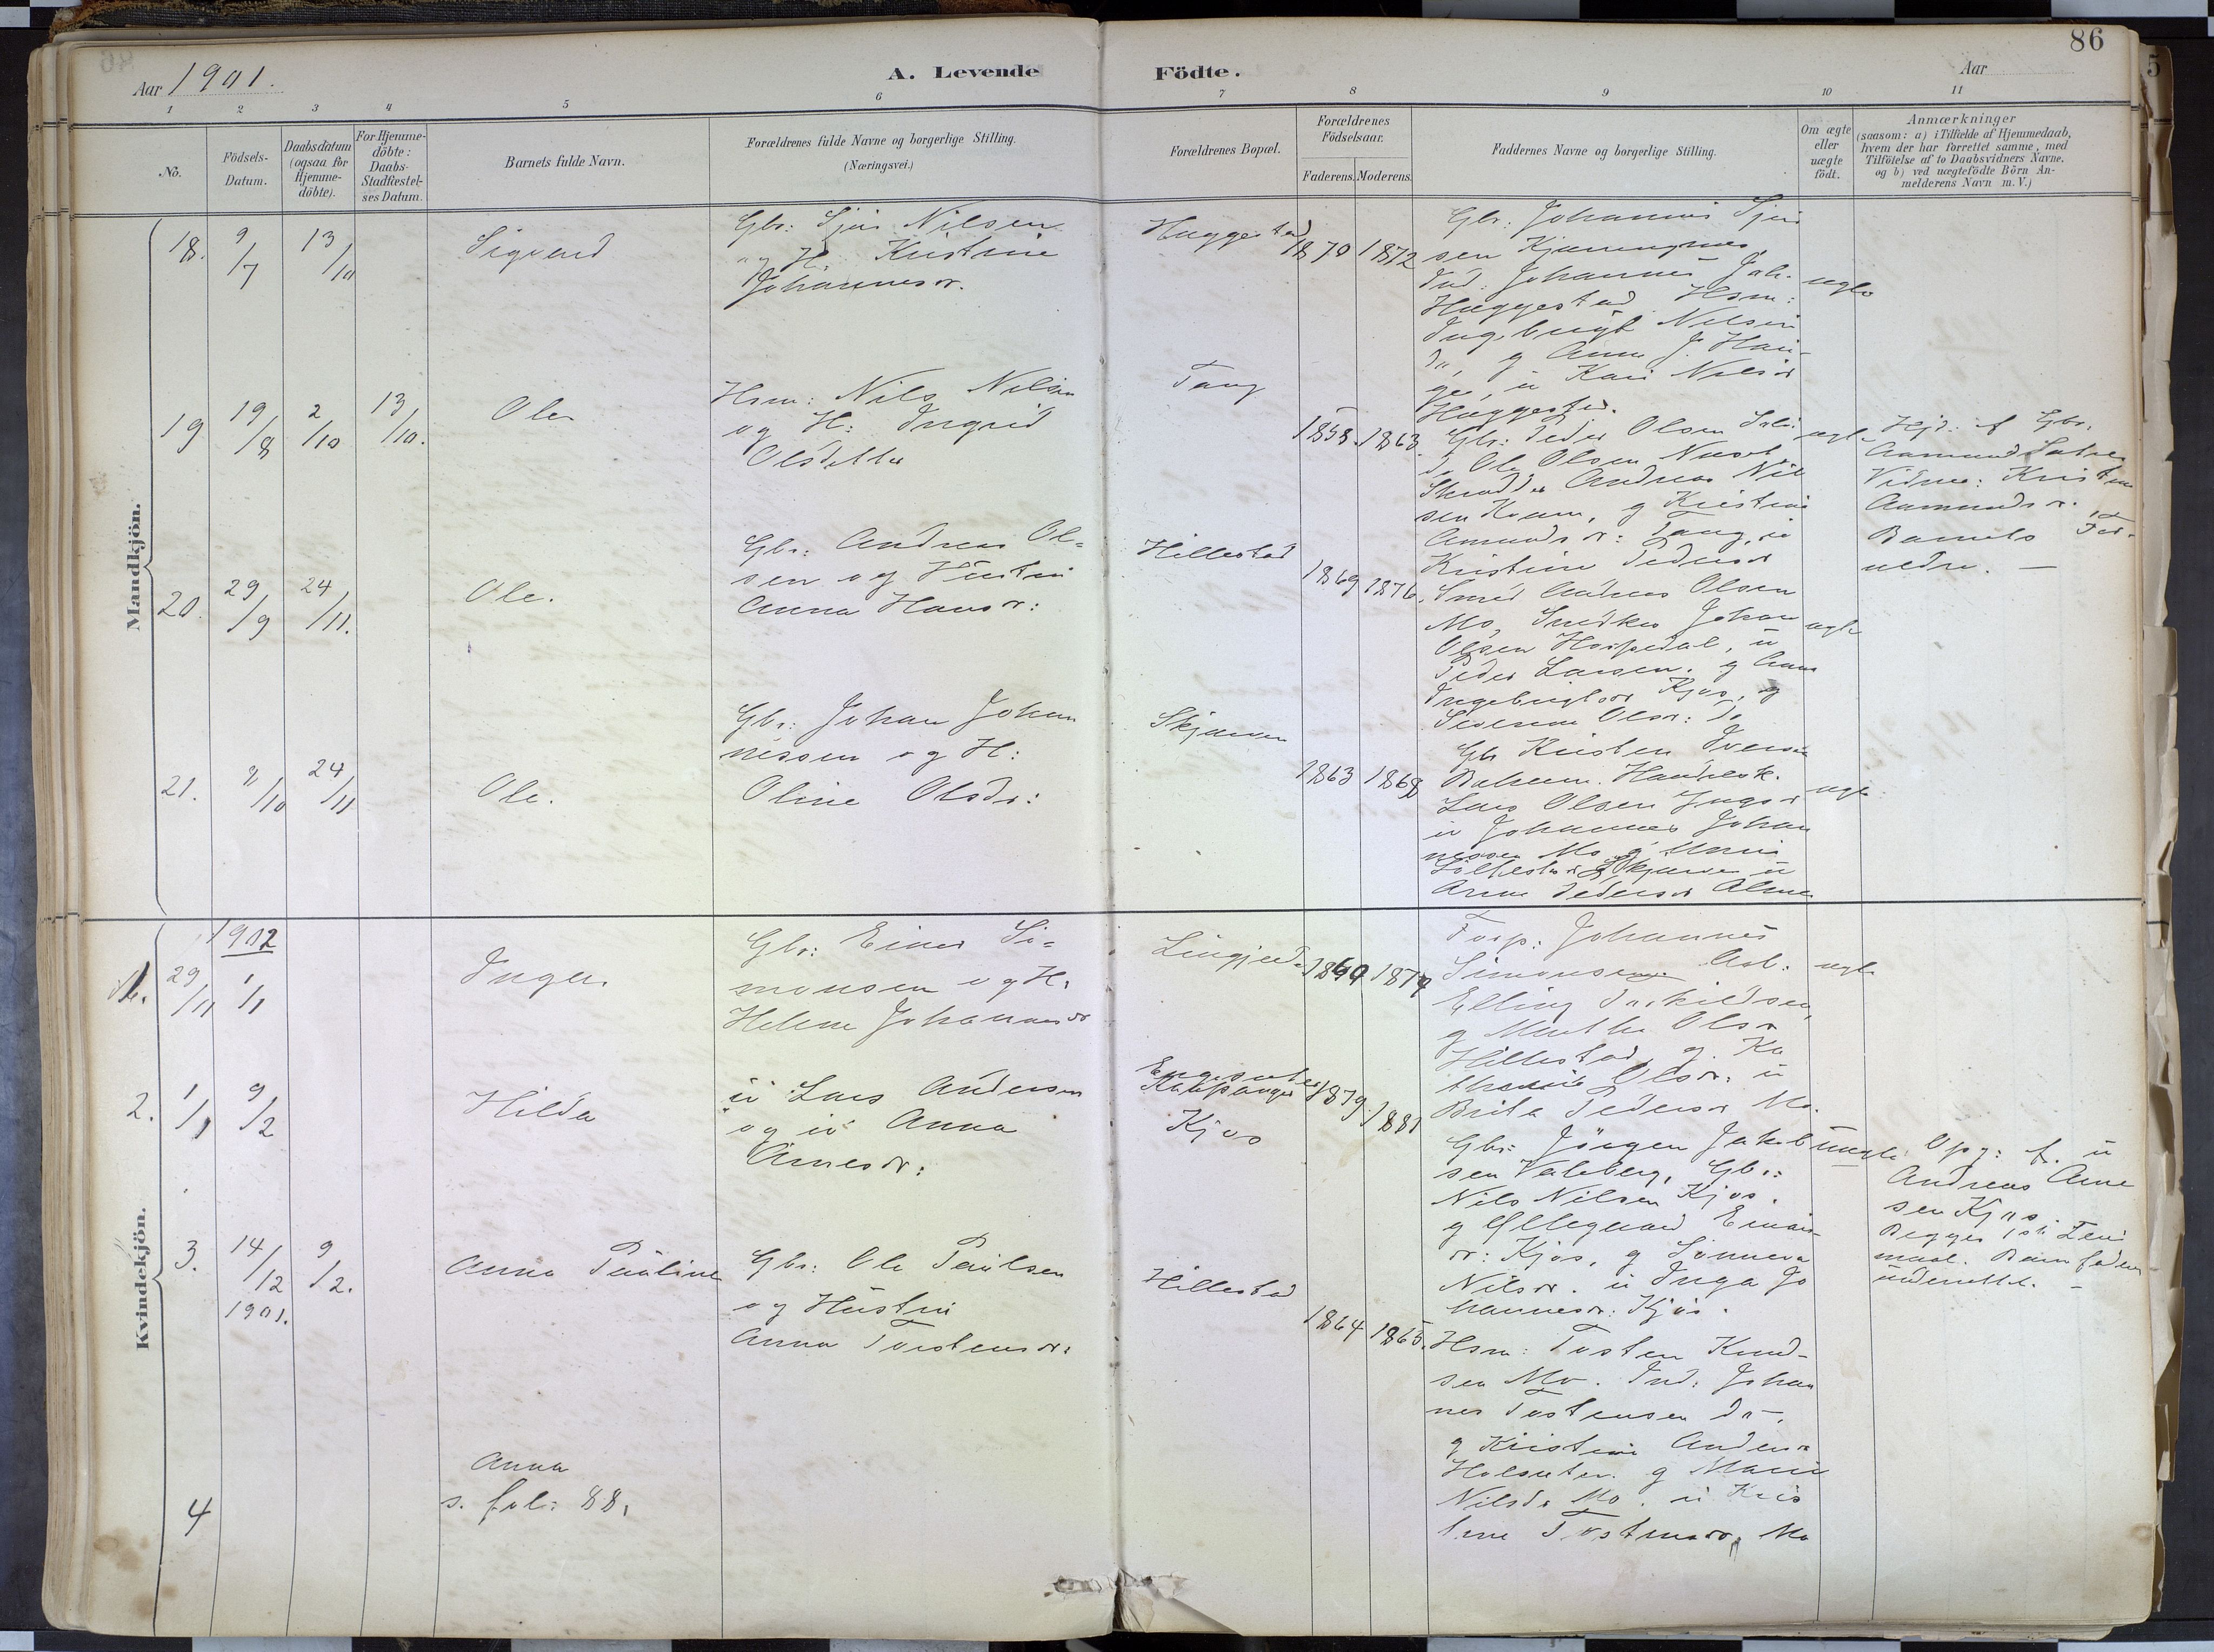 86
Aar 1901.
A. Levende Födte.
Aar
1 2 3 4 5 6 7 8 9 10 11
No.
Födsels-
Datum.
Daabsdatum
(ogsaa for
Hjemme-
döbte).
For Hjemme-
döbte:
Daabs-
Stadfæstel-
ses Datum.
Barnets fulde Navn.
Forældrenes fulde Navne og borgerlige Stilling.
(Næringsvei.)
Forældrenes Bopæl.
Forældrenes
Födselsaar.
Faderens. Moderens.
Faddernes Navne og borgerlige Stilling.
Om ægte
eller
uægte
födt.
Anmærkninger
(saasom: a) i Tilfælde af Hjemmedaab,
hvem der har forrettet samme, med
Tilföielse af to Daabsvidners Navne.
og b) ved uægtefödte Börn An-
melderens Navn m. V.)
Mandkjön.
18. 9/7 13/10 Sigvard
Gbr: Sjur Nilsen
og H. Kristine
Johannesdr.
Haggestad
1870 1872
Gbr: Johannes Sjur
sen
Ind. Johannes Joh.
Haggestad Hsm:
Ingebrigt Nilsen
do, g Anna J. Hau-
ge, u Kari Nilsdr
Haggestad.
ægte
19 19/8 2/10 13/10. Ole
Hsm: Nils Nilsen
og H: Ingrid
Olsdatter
Tang
1858. 1863.
Gbr: Peder Olsen
d, Ole Olsen
Skrædder Andreas Nil
sen Kvam, g Kristine
Amundsdr: Tang, u
Kristine Pedersdr
ægte
Hjd: af Gbr.
Aamund
Vidner: Kristine
Aamundsdr.
Barnets For-
ældre. —
20. 29/9 24/11. Ole.
Gbr: Andreas Ol=
sen og Hustru
Anna Hansdr:
Hillestad
1869 1876.
Smed Andreas Olsen
Mo, Snedker Johan
Olsen Hospedal, u
Peder Larsen. g Anna
Ingebrigtsdr Kjos, g
Olsdr: do
ægte
21. 2/10 24/11 Ole.
Gbr: Johan Johan
nessen og H:
Oline Olsdr:
Skjærven
1863 1868
Gbr Kristen Iversen
Handelsk.
Lars Olsen
u Johannes Johan
nessen Mo, g
Skjærven u
Anna Pedersdr
ægte
Kvindekjön.
1902
1. 29/11 1/1 Inga.
Gbr: Einar Si=
monsen og H.
Helene Johannesdr
1869 1879
Forp: Johannes
Simonsen
Elling
g Marthe Olsdr
Hillestad, g. Ka
thrine Olsdr: u
Brita Pedersdr Mo.
ægte
2. 1/1 9/2 Hilda
u Lars Andersen
og u Anna
Arnesdr:
Engesæter
Kaupanger
Kjos
1879 1881
Gbr: Jörgen Jakob
sen Valeberg, Gbr:
Nils Nilsen Kjos.
g Ollegaard Einars
dr: Kjos, g Sönneva
Nilsdr. u Inga Jo
hannesdr: Kjos.
uægte
Opg: f. u
Andreas Arne
sen Kjos
Begges 1ste Leier
maal. Barnefaderen
underrettet. —
3. 14/12 1901. 9/2. Anna Pauline
Gbr: Ole Paulsen
og Hustru
Anna Torstensdr:
Hillestad
1864 1865.
Hsm: Tosten Knud-
sen Mo. Ind: Johan
nes Tostensen do.
g Kristine Andersdr
Holsæter. g Marie
Nilsdr Mo. u Kris
tine Tostensdr. Mo
4 Anna
s. fol: 88.